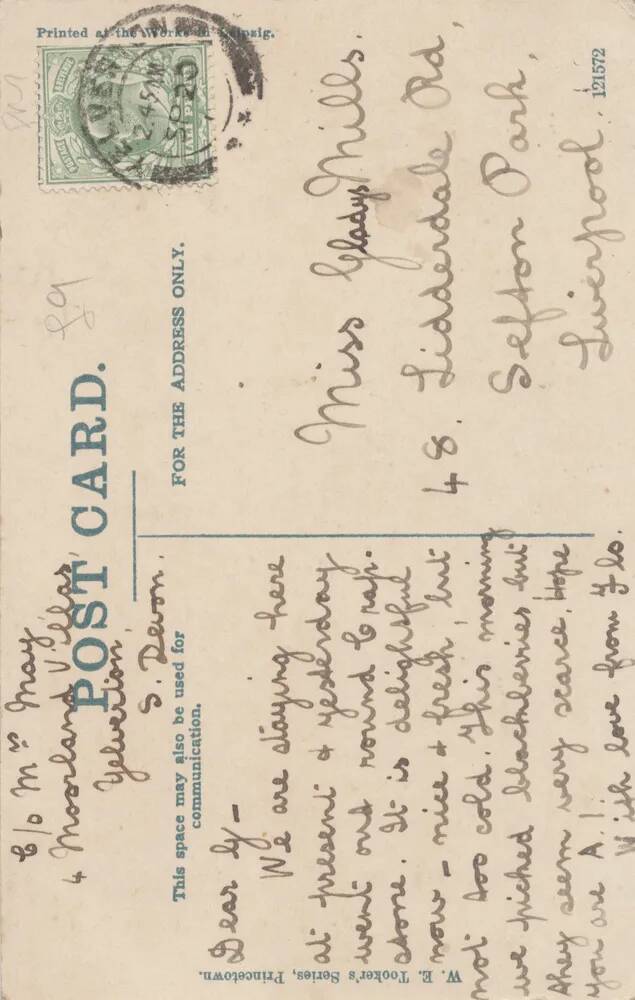 Printed at the Works in Leipzig.
YELVERTON
2.45 AM
SP 20
C/o Mrs May
4 Moorland Villas
Yelverton,
S. Devon.
POST CARD.
This space may also be used for
communication.
FOR THE ADDRESS ONLY.
89
Dear G–
We are staying here
at present & yesterday
went out round Crap-
stone. It is delightful
now – nice & fresh, but
not too cold. This morning
we picked blackberries but
they seem very scarce. Hope
you are A.1.
With love from F ls.
Miss Gladys Mills.
48. Lidderdale Rd,
Sefton Park,
Liverpool.
121572
W. E. Tooker's Series, Princetown.